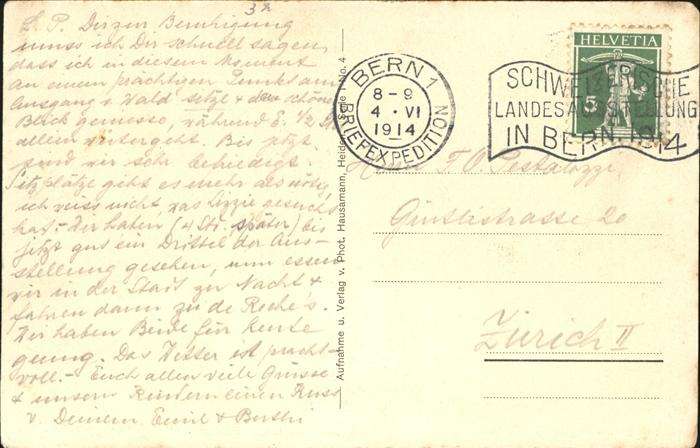 32
L. P. Dir zur Beruhigung
muss ich Dir schnell sagen,
dass ich in diesem Moment
an einem prächtigen Punkt am
Ausgang v. Wald sitze & den schönen
Blick geniesse, während E. 1/2 St
allein weitergeht. Bis jetzt
sind wir sehr befriedigt.
Sitzplätze geht es mehr als nötig,
ich weiss nicht, was Lizzie gesucht
hat. Wir haben (4 St. später) bis
jetzt gut ein Drittel der Aus-
stellung gesehen, nun essen
wir in der Stadt zu Nacht &
fahren dann zu de Roche's.
Wir haben Beide für heute
genug. Das Wetter ist pracht-
voll. - Euch allen viele Grüsse
& unsern Kindern einen Kuss
v. Deinem Emil & Berthi
Aufnahme u. Verlag v. Phot. Hausamann, Heiden Serie I No. 4
BERN 1
8-9
4 · VI
1914
BRIEFEXPEDITION
HELVETIA
5
SCHWEIZERISCHE
LANDESAUSSTELLUNG
IN BERN 1914
F. O. Pestalozzi
20
Zürich II